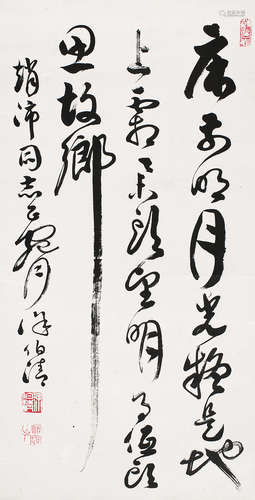 床前明月光疑是地
上霜举头望明月低头
思故鄉
同志正腕徐伯清